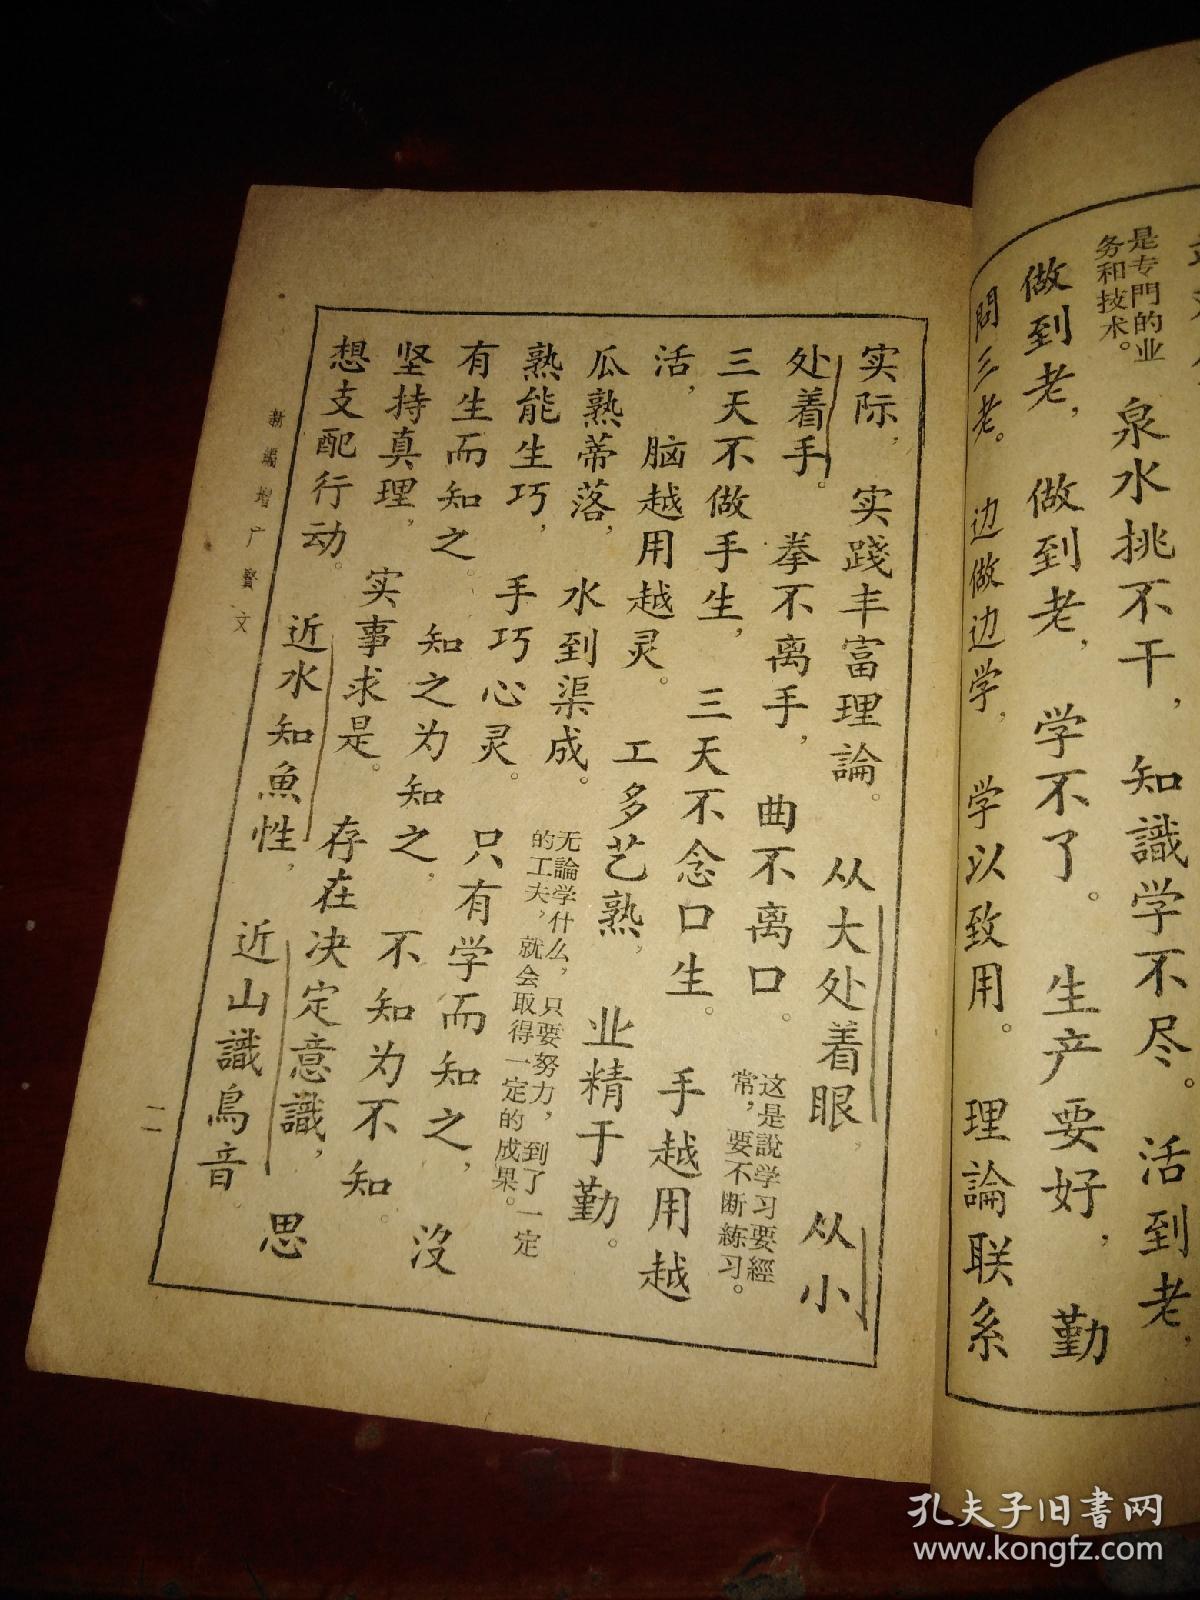 是专門的业
务和技术。
泉水挑不干，知識学不尽。活到老，
做到老，做到老，学不了。生产要好，勤
問三老。边做边学，学以致用。理論联系
实际，实踐丰富理論。从大处着眼，从小
处着手。拳不离手，曲不离口。
这是說学习要經
常，要不断練习。
三天不做手生，三天不念口生。手越用越
活，脑越用越灵。工多艺熟，业精于勤。
瓜熟蒂落，水到渠成。
无論学什么，只要努力，到了一定
的工夫，就会取得一定的成果。
熟能生巧，手巧心灵。只有学而知之，沒
有生而知之。知之为知之，不知为不知。
坚持真理，实事求是。存在决定意識，思
想支配行动。近水知魚性，近山識鳥音。
新編增广賢文
一一
孔夫子旧书网
www.kongfz.com